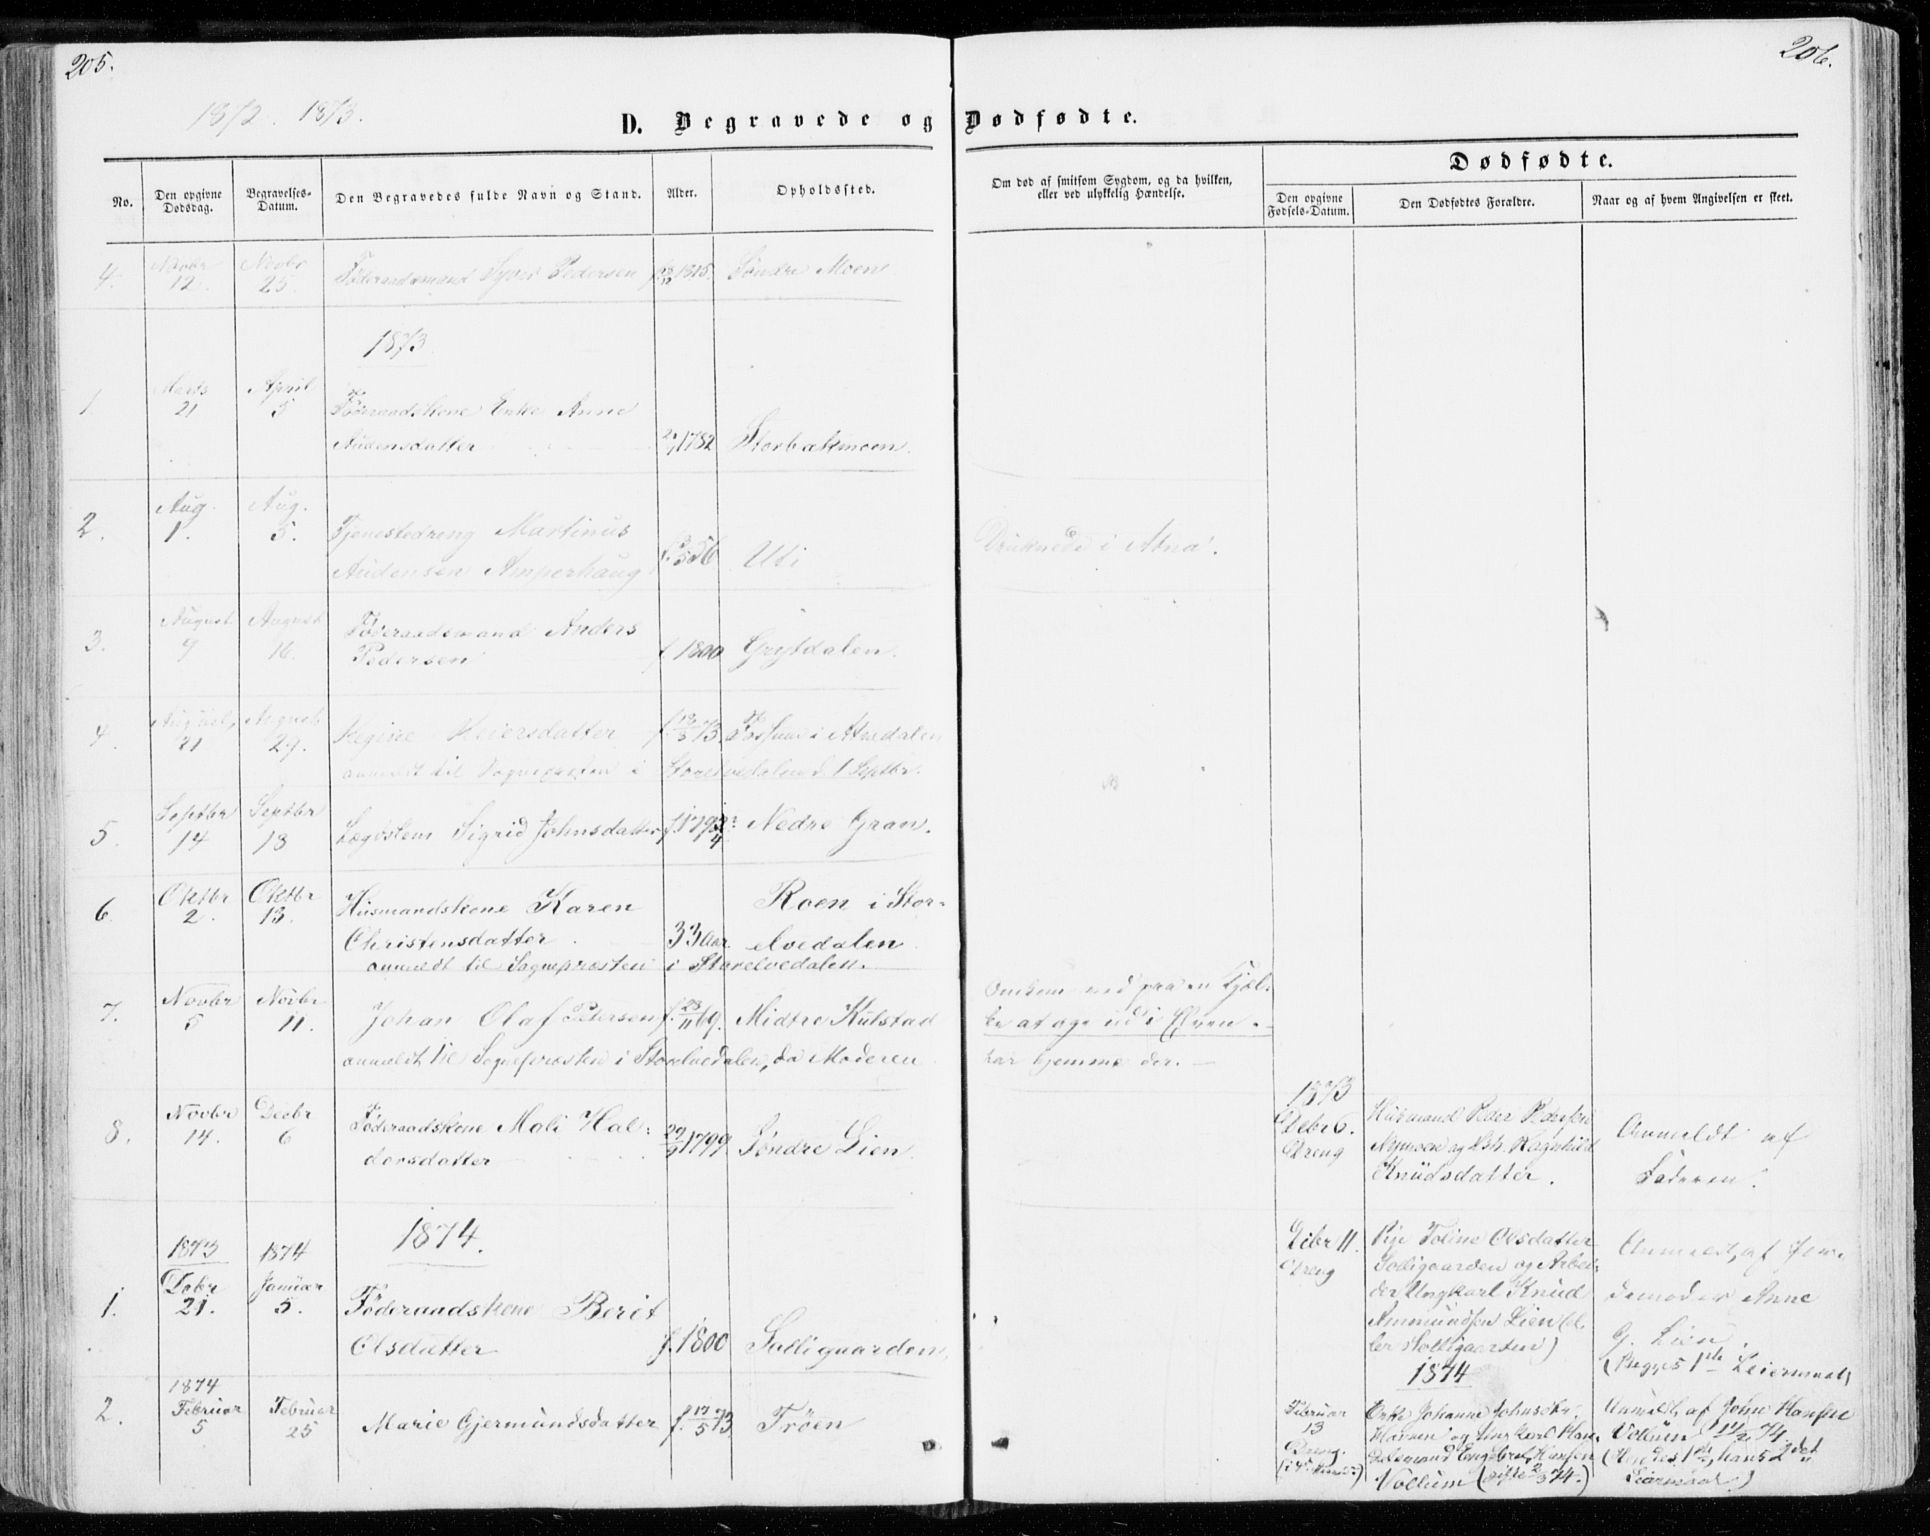 205.
206.
1872. 1873.
D. Begravede og Dødfødte.
No.
Den opgivne Dødsdag.
Begravelses-Datum.
Den Begravedes fulde Navn og Stand.
Alder.
Opholdssted.
Om død af smitsom Sygdom, og da hvilken,
eller ved ulykkelig Hændelse.
Dødfødte.
Den opgivne Fødsels-Datum.
Den Dødfødtes Forældre.
Naar og af hvem Angivelsen er skeet.
4. Novbr 12. Novbr 25. Føderaadsmand Syver Pedersen 1815. Søndre Moen
1873
1 Marts 21 April 5 Føderaadskone Enke Anne
Audensdatter 1782 Storbækmoen.
2. Aug. 1. Aug. 5. Tjenestedreng Martinus
Audensen Amperhaug 56 Uti
Druknede i Atna.
3. August 9 August 16. Føderaadsmand Anders
Pedersen f 1800 Grytdalen.
4. August 21 August 29. Regine Reiersdatter f 73. Fossum i Atnedalen
anmeldt til Sognepræsten i Storelvedalen d. 1 Septbr.
5. Septbr 14 Septbr 18 Lægdslem Sigrid Johnsdatter Nedre Gran.
6. Oktbr 2. Oktbr 13. Husmandskone Karen Roen i Stor-
Christensdatter 33 Aar. elvedalen
anmeldt til Sognepræsten i Storelvedalen.
7. Novbr 5 Novbr 11. Johan Olaf Petersen f. 28/11 69. Midtre Kulstad
Omkom ved paa en Kjæl-
ke at age ud i Elven.
anmeldt til Sognepræsten i Storelvedalen, da Moderen
har hjemme der.
8. Novbr 14. Decbr 6 Føderaadskone Mali Hal-
dorsdatter 1799 Søndre Lien.
1873
Debr 6. Dreng
Husmand Peder Pedersen
Nymoen og Kh. Ragnhild
Knudsdatter.
Anmeldt af
Faderen.
Debr 11. Dreng
Pige Toline Olsdatter
Solligaarden og Arbei-
der Ungkarl Knud
Ammundsen Lien (el-
ler Solligaarden)
Anmeldt af Jor-
demoder Anne
G. Lien.
(Begges 1ste Leiermaal)
1874.
1. 1873 Debr 21. 1874 Januar 5. Føderaadskone Berit
Olsdatter f. 1800 Solligaarden
2. 1874 Februar 5 Februar 25 Marie Gjermundsdatter f. 17/5 73 Trøen
1874
Februar 13 Dreng.
Enke Johanne Johnsdtr.
Haanen og Ungkarl Han-
delsmand Engebret Hansen
Vollum
Anmeldt af John Hansen
Vollum 74
(Hendes 1ste, hans 2det
Leiermaal)